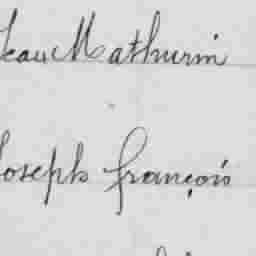 Jean Mathurin
Joseph françois